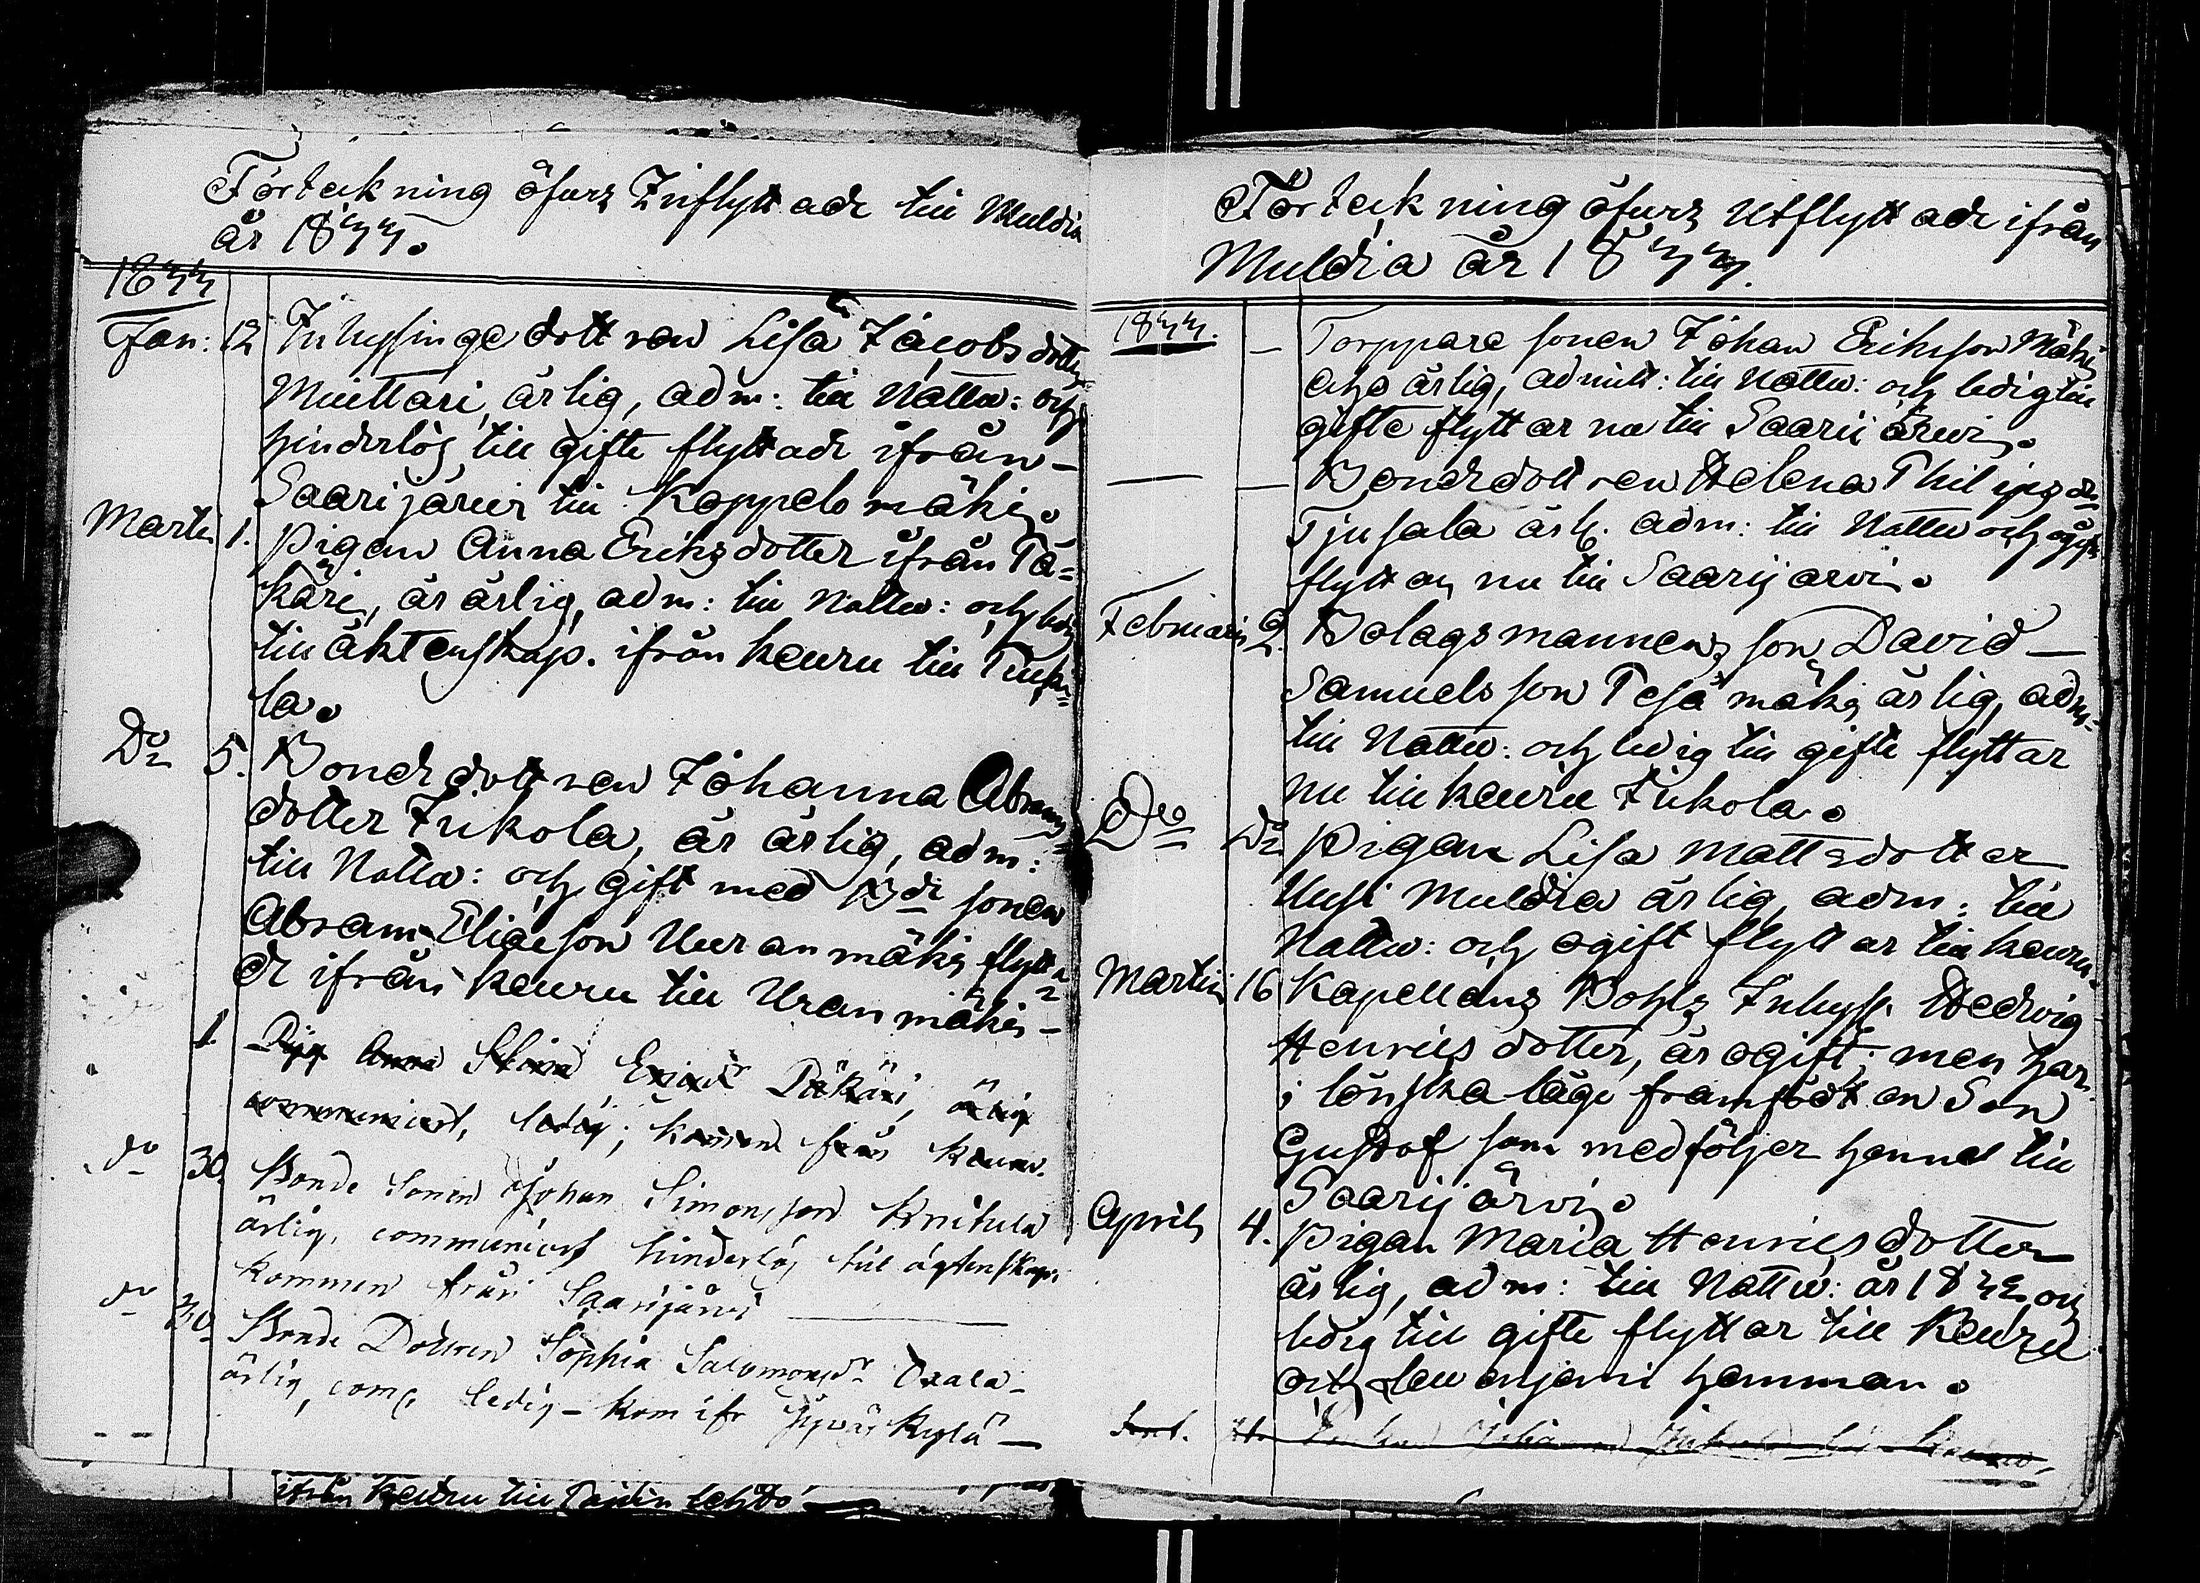 Förteckning öfver Inflyttade till Muldia
år 1844.
1844
Jan: 12 Inhysinge dottren Lisa Jacobsdotter
Miettari, ärlig, adm: till Nattw: och
hinderlös till gifte flyttade ifrån
Saarijärvi till Koppelomäki.
Martii 1. Pigan Anna Eriksdotter ifrån Pä-
käri, är ärlig, adm: till Nattw: och ledig
till äktenskap. ifrån Keuru till
la.
Do 5. Bondedottren Johanna Abrams
dotter Jukola, är ärlig, adm:
till Nattw: och gift med Bde sonen
Abram Eliaeson Uuranmäki, flytta
de ifrån Keuru till Uranmäki -
1. Pig Anna Stina Ericsdr Päkäri, ärlig
communicert, ledig, kommen från Keuru.
do 30. Bonde Sonen Johan Simonsson Knihtilä
ärlig, communicert hinderlös till ägtenskap.
kommen från Saarijärvi
do 30. Bonde Dottren Sophia Salomonsdr
ärlig, com, ledig - kom ifr Jyväskylä -
ifrån Keuru till
Förteckning öfver Utflyttade ifrån
Muldia år 1844.
1844. - Torppare sonen Johan Eriksson Mäki
aho ärlig, admitt: till Nattw: och ledig till
gifte flyttar nu till Saarijärvi.
- - Bondedottren Helena Philipsdr
Tjusala ärl. adm: till Nattw och ogift
flyttar nu till Saarijärvi.
Februarii 2. Bolagsmannens son David -
Samuelsson Pesämäki, ärlig, adm:
till Nattw: och ledig till gifte flyttar
nu till Keuru Jukola.
Do Do Pigan Lisa Mattsdotter
Uusi Muldia ärlig, adm: till
Nattw: och ogift flyttar till Keuru.
Martii 16 Kapellans Bohls Inhys. Hedvig
Henricsdotter, är ogift, men har
i lönska läge framfödt en Son
Gustaf som medföljer henne till
Saarijärvi.
April 4. Pigan Maria Henricsdotter
ärlig, adm: till Nattw: år 1842 och
ledig till gifte flyttar till Keuru
och hemman.
Sept.